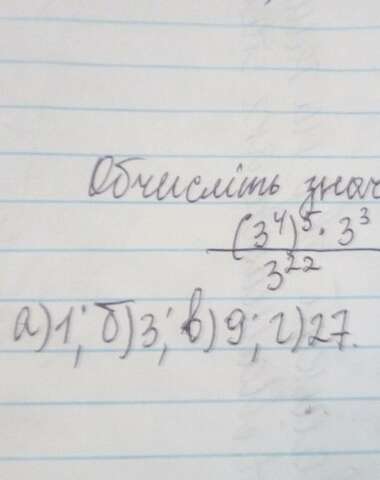 Обчисліть знач
(3⁴)⁵ · 3³
3²²
а)1; б)3; в)9; г)27.